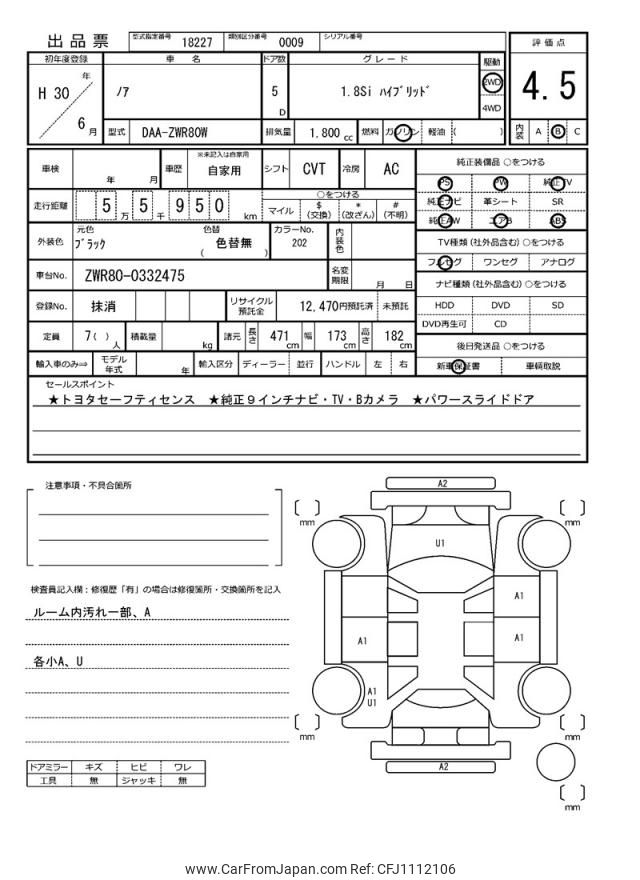 出品票 型式指定番号 18227 類別区分番号 0009 シリアル番号
初年度登録 車 名 ドア数 グレード 駆動 評価点
H 30 年 6 月 ノア 5 D 1.8Si ﾊｲﾌﾞﾘｯﾄﾞ 2WD 4WD 4.5
型式 DAA-ZWR80W 排気量 1.800 cc 燃料 ガソリン 軽油 ( ) 内装 A B C
車検 年 月 車歴 ※未記入は自家用 自家用 シフト CVT 冷房 AC
走行距離 5 万 5 千 9 5 0 km ○をつける マイル $ (交換) * (改ざん) # (不明)
外装色 元色 ﾌﾞﾗｯｸ 色替 ( 色替無 ) カラーNo. 202 内装色
車台No. ZWR80-0332475 名変期限 月 日
登録No. 抹消 リサイクル預託金 12,470円預託済 未預託
定員 7( ) 人 積載量 kg 諸元 長さ 471 cm 幅 173 cm 高さ 182 cm
輸入車のみ⇒ モデル年式 年 輸入区分 ディーラー 並行 ハンドル 左 右
純正装備品 ○をつける
PS PW 純正TV
純正ナビ 革シート SR
純正AW エアB ABS
TV種類 (社外品含む) ○をつける
フルセグ ワンセグ アナログ
ナビ種類 (社外品含む) ○をつける
HDD DVD SD
DVD再生可 CD
後日発送品 ○をつける
新車保証書 車輌取説
セールスポイント
★トヨタセーフティセンス ★純正９インチナビ・TV・Bカメラ ★パワースライドドア
注意事項・不具合箇所
検査員記入欄：修復歴「有」の場合は修復箇所・交換箇所を記入
ルーム内汚れ一部、A
各小A、U
ドアミラー キズ ヒビ ワレ
工具 無 ジャッキ 無
A2
mm mm
U1
A1
A1 A1
A1
U1
mm mm
A2
mm
www.CarFromJapan.com Ref: CFJ1112106